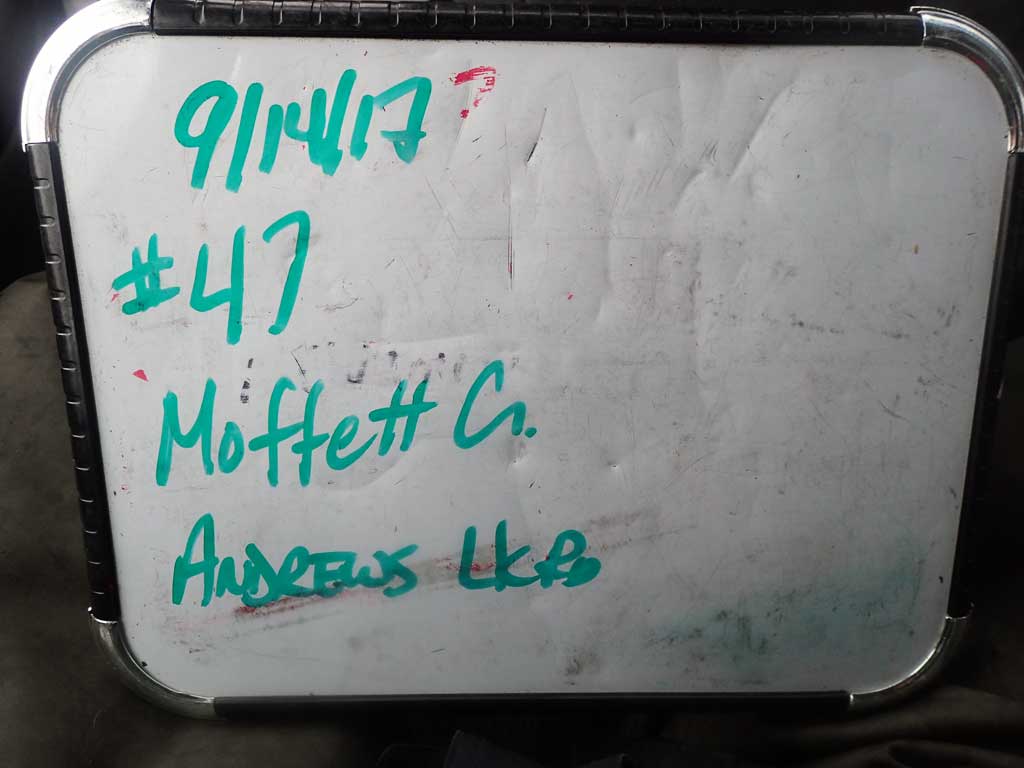 9/14/17
#47
Moffett Cr.
ANDREWS Lk Rd